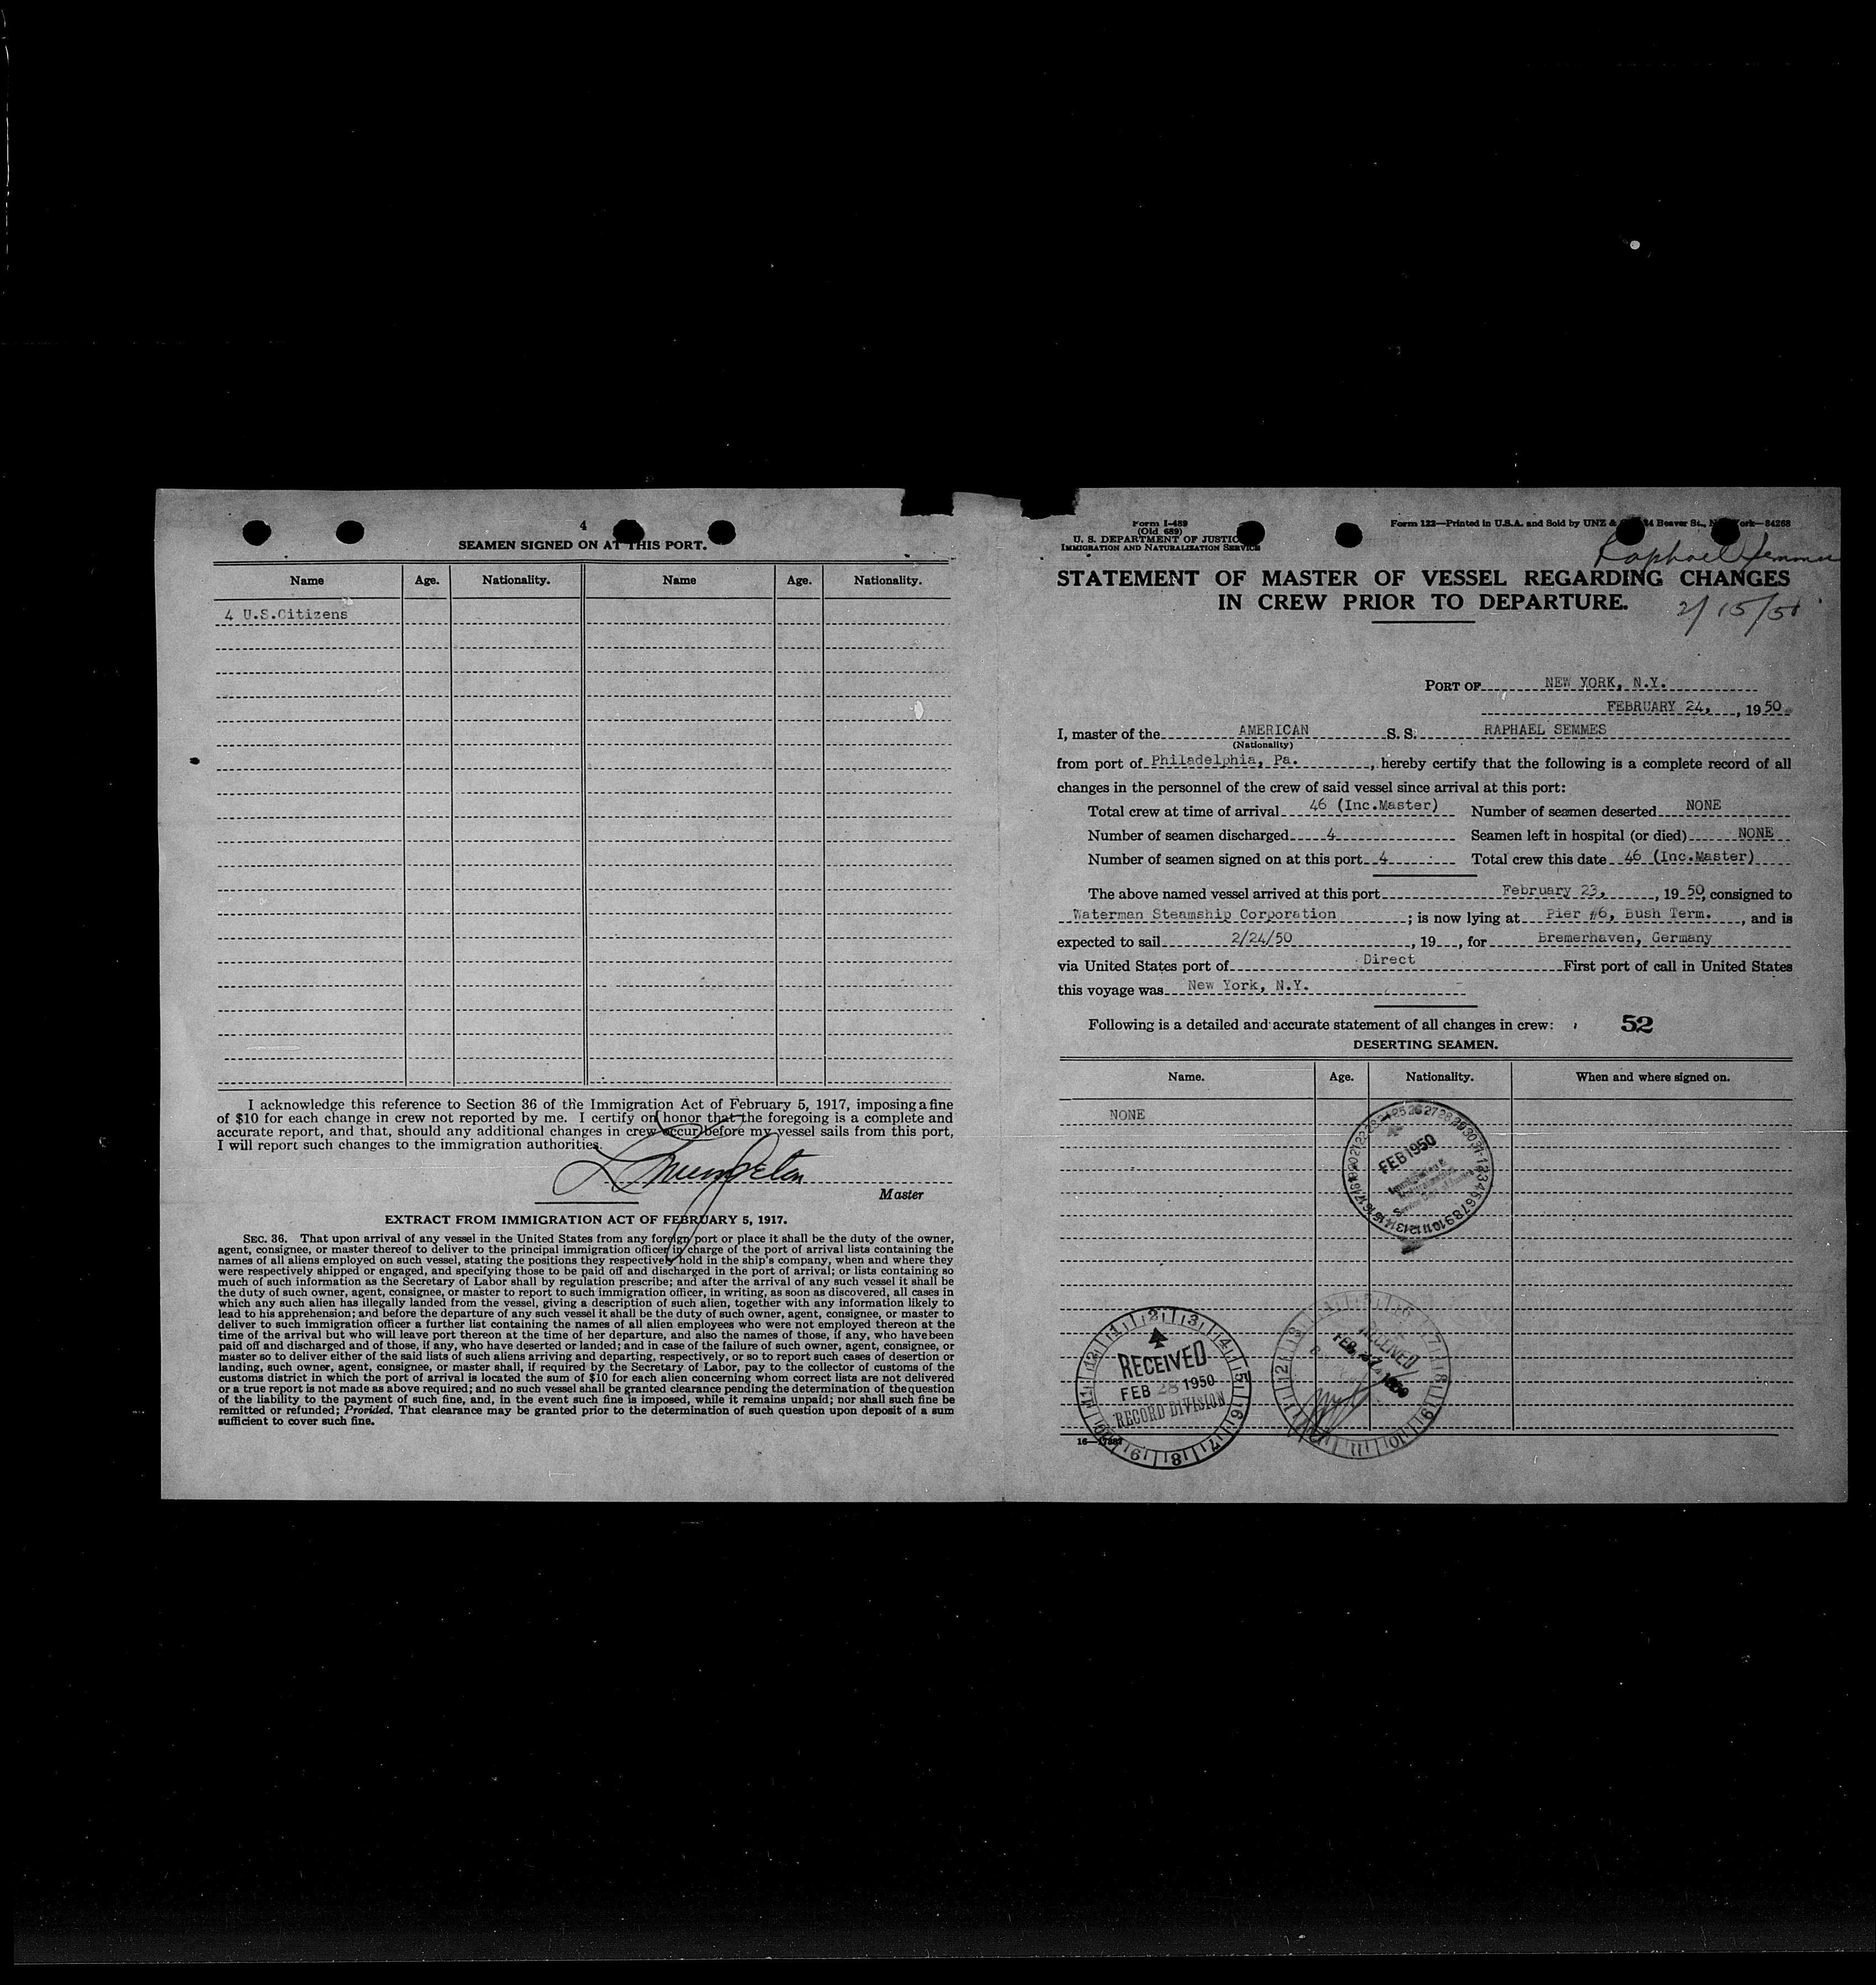 4
SEAMEN SIGNED ON AT THIS PORT.
Name Age. Nationality. Name Age. Nationality.
4 U.S.Citizens
I acknowledge this reference to Section 36 of the Immigration Act of February 5, 1917, imposing a fine
of $10 for each change in crew not reported by me. I certify on honor that the foregoing is a complete and
accurate report, and that, should any additional changes in crew occur before my vessel sails from this port,
I will report such changes to the immigration authorities.
Master
EXTRACT FROM IMMIGRATION ACT OF FEBRUARY 5, 1917.
SEC. 36. That upon arrival of any vessel in the United States from any foreign port or place it shall be the duty of the owner,
agent, consignee, or master thereof to deliver to the principal immigration officer in charge of the port of arrival lists containing the
names of all aliens employed on such vessel, stating the positions they respectively hold in the ship's company, when and where they
were respectively shipped or engaged, and specifying those to be paid off and discharged in the port of arrival; or lists containing so
much of such information as the Secretary of Labor shall by regulation prescribe; and after the arrival of any such vessel it shall be
the duty of such owner, agent, consignee, or master to report to such immigration officer, in writing, as soon as discovered, all cases in
which any such alien has illegally landed from the vessel, giving a description of such alien, together with any information likely to
lead to his apprehension; and before the departure of any such vessel it shall be the duty of such owner, agent, consignee, or master to
deliver to such immigration officer a further list containing the names of all alien employees who were not employed thereon at the
time of the arrival but who will leave port thereon at the time of her departure, and also the names of those, if any, who have been
paid off and discharged and of those, if any, who have deserted or landed; and in case of the failure of such owner, agent, consignee, or
master so to deliver either of the said lists of such aliens arriving and departing, respectively, or so to report such cases of desertion or
landing, such owner, agent, consignee, or master shall, if required by the Secretary of Labor, pay to the collector of customs of the
customs district in which the port of arrival is located the sum of $10 for each alien concerning whom correct lists are not delivered
or a true report is not made as above required; and no such vessel shall be granted clearance pending the determination of the question
of the liability to the payment of such fine, and, in the event such fine is imposed, while it remains unpaid; nor shall such fine be
remitted or refunded; Provided, That clearance may be granted prior to the determination of such question upon deposit of a sum
sufficient to cover such fine.
Form I-489
(Old 689)
U. S. DEPARTMENT OF JUSTICE
IMMIGRATION AND NATURALIZATION SERVICE
Form 122—Printed in U.S.A. and Sold by UNZ & Beaver St., 84268
Raphael Semmes
STATEMENT OF MASTER OF VESSEL REGARDING CHANGES
IN CREW PRIOR TO DEPARTURE.
2/15/50
PORT OF NEW YORK, N.Y.
FEBRUARY 24, , 1950
I, master of the AMERICAN S. S. RAPHAEL SEMMES
(Nationality)
from port of Philadelphia, Pa. , hereby certify that the following is a complete record of all
changes in the personnel of the crew of said vessel since arrival at this port:
Total crew at time of arrival 46 (Inc.Master) Number of seamen deserted NONE
Number of seamen discharged 4 Seamen left in hospital (or died) NONE
Number of seamen signed on at this port 4 Total crew this date 46 (Inc.Master)
The above named vessel arrived at this port February 23, , 1950, consigned to
Waterman Steamship Corporation ; is now lying at Pier #6, Bush Term. , and is
expected to sail 2/24/50 , 19 , for Bremerhaven, Germany
via United States port of Direct First port of call in United States
this voyage was New York, N.Y.
Following is a detailed and accurate statement of all changes in crew: 52
DESERTING SEAMEN.
Name. Age. Nationality. When and where signed on.
NONE
FEB 1950
Immigration &
Naturalization
RECEIVED
FEB 28 1950
RECORD DIVISION
RECEIVED
FEB
16—